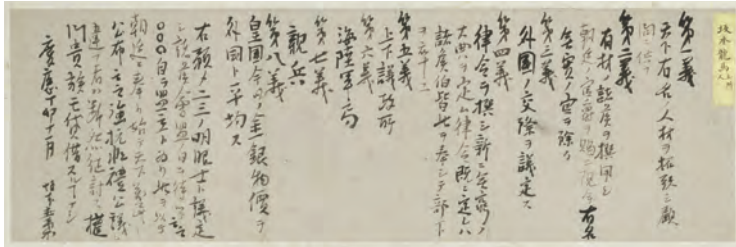 第一義
天下有名ノ人材ヲ招致シ顧
問ニ供フ
第二義
有材ノ諸侯ヲ撰用シ
朝廷ノ官爵ヲ賜ヒ現今有名
無實ノ官ヲ除ク
第三義
外國ノ交際ヲ議定ス
第四義
律令ヲ撰シ新ニ無窮ノ
大典ヲ定ム律令既ニ定レハ
諸侯伯皆此ヲ奉シテ部下
ヲ率ユ
第五義
上下議政所
第六義
海陸軍局
第七義
親兵
第八義
皇國今日ノ金銀物價ヲ
外國ト平均ス
右預メ二三ノ明眼士ト議定
シ諸侯會盟ノ日ヲ待ツテ云云
○○○自ラ盟主ト為リ此ヲ以テ
朝廷ニ奉リ始テ天下萬民ニ
公布云云強抗非禮公議ニ
違フ者ハ断然征討ス權
門貴族モ貸借スルコトナシ
慶應丁卯十一月 坂本直柔
坂本龍馬